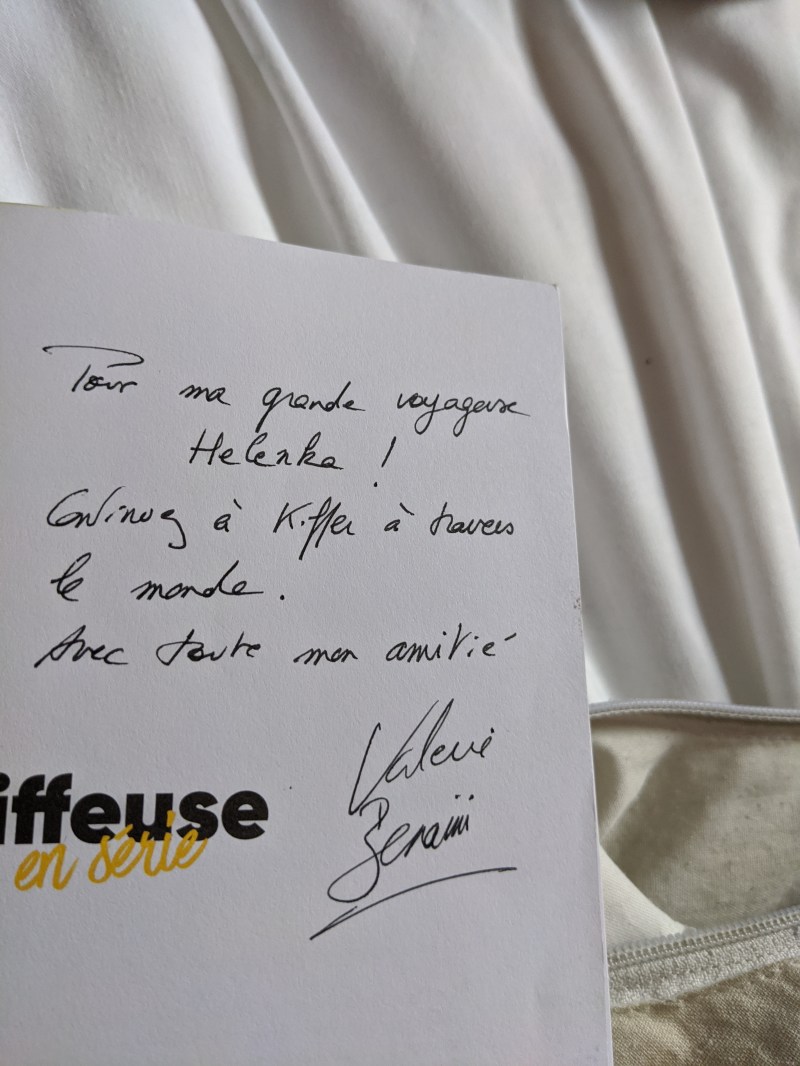 Pour ma grande voyageuse
Helenka !
Continuez à Kiffer à travers
le monde.
Avec toute mon amitié
Valérie
iffeuse
en série